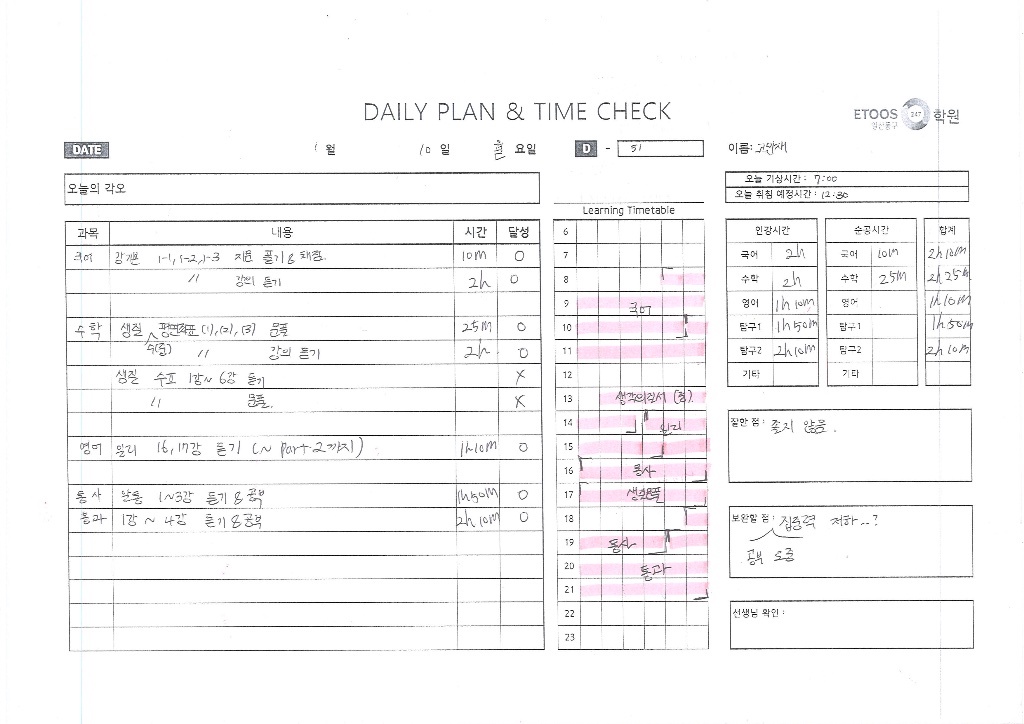 DAILY PLAN & TIME CHECK
ETOOS 247 학원
일산동구
DATE 1 월 10 일 월 요일 D - 51 이름:
오늘의 각오
오늘 기상시간 : 7:00
오늘 취침 예정시간 : 12:30
과목 내용 시간 달성
국어 강기본 1-1, 1-2, 1-3 지문 풀기 & 채점. 10m O
〃 강의 듣기 2h O
수학 생질 평면좌표 (1), (2), (3) 문풀 25m O
수(상) 〃 강의 듣기 2h O
생질 수고 1강~6강 듣기 X
〃 문풀. X
영어 원리 16, 17강 듣기 (~ part 2까지) 1h10m O
통사 1~3강 듣기 & 공부 1h50m O
통과 1강 ~ 4강 듣기 & 공부 2h 10m O
Learning Timetable
6
7
8
9 국어
10
11
12
13 생각의질서 (상).
14 원리
15
16 통사
17 생질문풀
18
19 통사
20 통과
21
22
23
인강시간 순공시간 합계
국어 2h 국어 10m 2h 10m
수학 2h 수학 25m 2h 25m
영어 1h 10m 영어 1h 10m
탐구1 1h 50m 탐구1 1h 50m
탐구2 2h 10m 탐구2 2h 10m
기타 기타
잘한 점 : 졸지 않음.
보완할 점 : 집중력 저하...?
공부 도중
선생님 확인 :